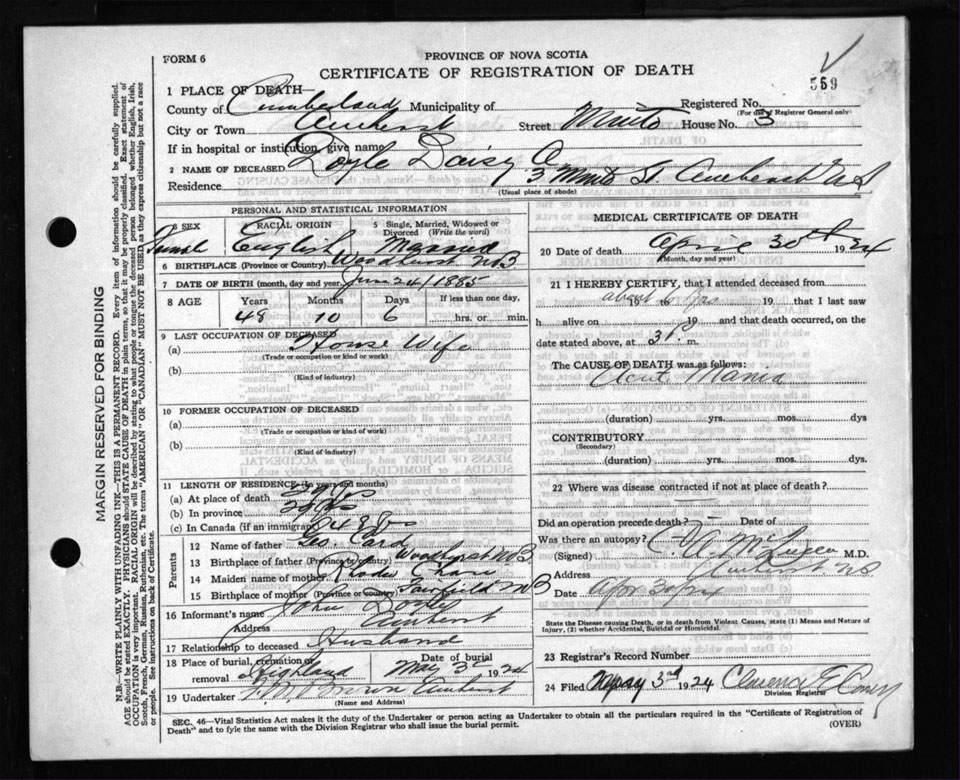 FORM 6
PROVINCE OF NOVA SCOTIA
CERTIFICATE OF REGISTRATION OF DEATH
559
1 PLACE OF DEATH—
County of Cumberland Municipality of
Registered No.
(For use of Registrar General only)
City or Town Amherst Street Minto House No. 3
If in hospital or institution, give name
2 NAME OF DECEASED Doyle Daisy
Residence 3 Minto St Amherst NS
(Usual place of abode)
MARGIN RESERVED FOR BINDING
N.B.—WRITE PLAINLY WITH UNFADING INK—THIS IS A PERMANENT RECORD. Every item of information should be carefully supplied.
AGE should be stated EXACTLY. PHYSICIANS should STATE CAUSE OF DEATH in plain terms, so that it may be properly classified. Exact statement of
OCCUPATION is very important. RACIAL ORIGIN will be described by stating to what people or tongue the deceased person belonged whether English, Irish,
Scotch, French, German, Russian, Ruthenian, etc. The terms "AMERICAN" OR "CANADIAN" MUST NOT BE USED as they express citizenship but not a race
or people. See instructions on back of Certificate.
PERSONAL AND STATISTICAL INFORMATION
SEX
RACIAL ORIGIN
5 Single, Married, Widowed or
Divorced (Write the word)
Female English Married
6 BIRTHPLACE (Province or Country) NB
7 DATE OF BIRTH (month, day and year) 24/1885
8 AGE Years Months Days If less than one day,
48 10 6 hrs. or min.
9 LAST OCCUPATION OF DECEASED
(a) House Wife
(Trade or occupation or kind or work)
(b)
(Kind of industry)
10 FORMER OCCUPATION OF DECEASED
(a)
(Trade or occupation or kind of work)
(b)
(Kind of industry)
11 LENGTH OF RESIDENCE (in years and months)
(a) At place of death
(b) In province
(c) In Canada (if an immigrant) 48
Parents
12 Name of father Geo.
13 Birthplace of father (Province or country) NB
14 Maiden name of mother
15 Birthplace of mother (Province or country) Fairfield NB
16 Informant's name John Doyle
Address Amherst
17 Relationship to deceased Husband
18 Place of burial, cremation or
removal Highland
Date of burial
May 3 1934
19 Undertaker Brown Amherst
(Name and Address)
MEDICAL CERTIFICATE OF DEATH
20 Date of death April 30th 1934
(Month, day and year)
21 I HEREBY CERTIFY, that I attended deceased from
about 19 19 that I last saw
h alive on 19 and that death occurred, on
date stated above, at m.
The CAUSE OF DEATH was as follows:
Acute Mania
(duration) yrs. mos. dys
CONTRIBUTORY
(Secondary)
(duration) yrs. mos. dys.
22 Where was disease contracted if not at place of death?
Did an operation precede death?
Was there an autopsy?
(Signed) M.D.
Address Amherst NS
Date
State the Disease causing Death, or in death from Violent Causes, state (1) Means and Nature of
Injury, (2) whether Accidental, Suicidal or Homicidal.
23 Registrar's Record Number
24 Filed May 3rd 1934 Clarence E
Division Registrar
SEC. 46—Vital Statistics Act makes it the duty of the Undertaker or person acting as Undertaker to obtain all the particulars required in the "Certificate of Registration of
Death" and to fyle the same with the Division Registrar who shall issue the burial permit.
(OVER)